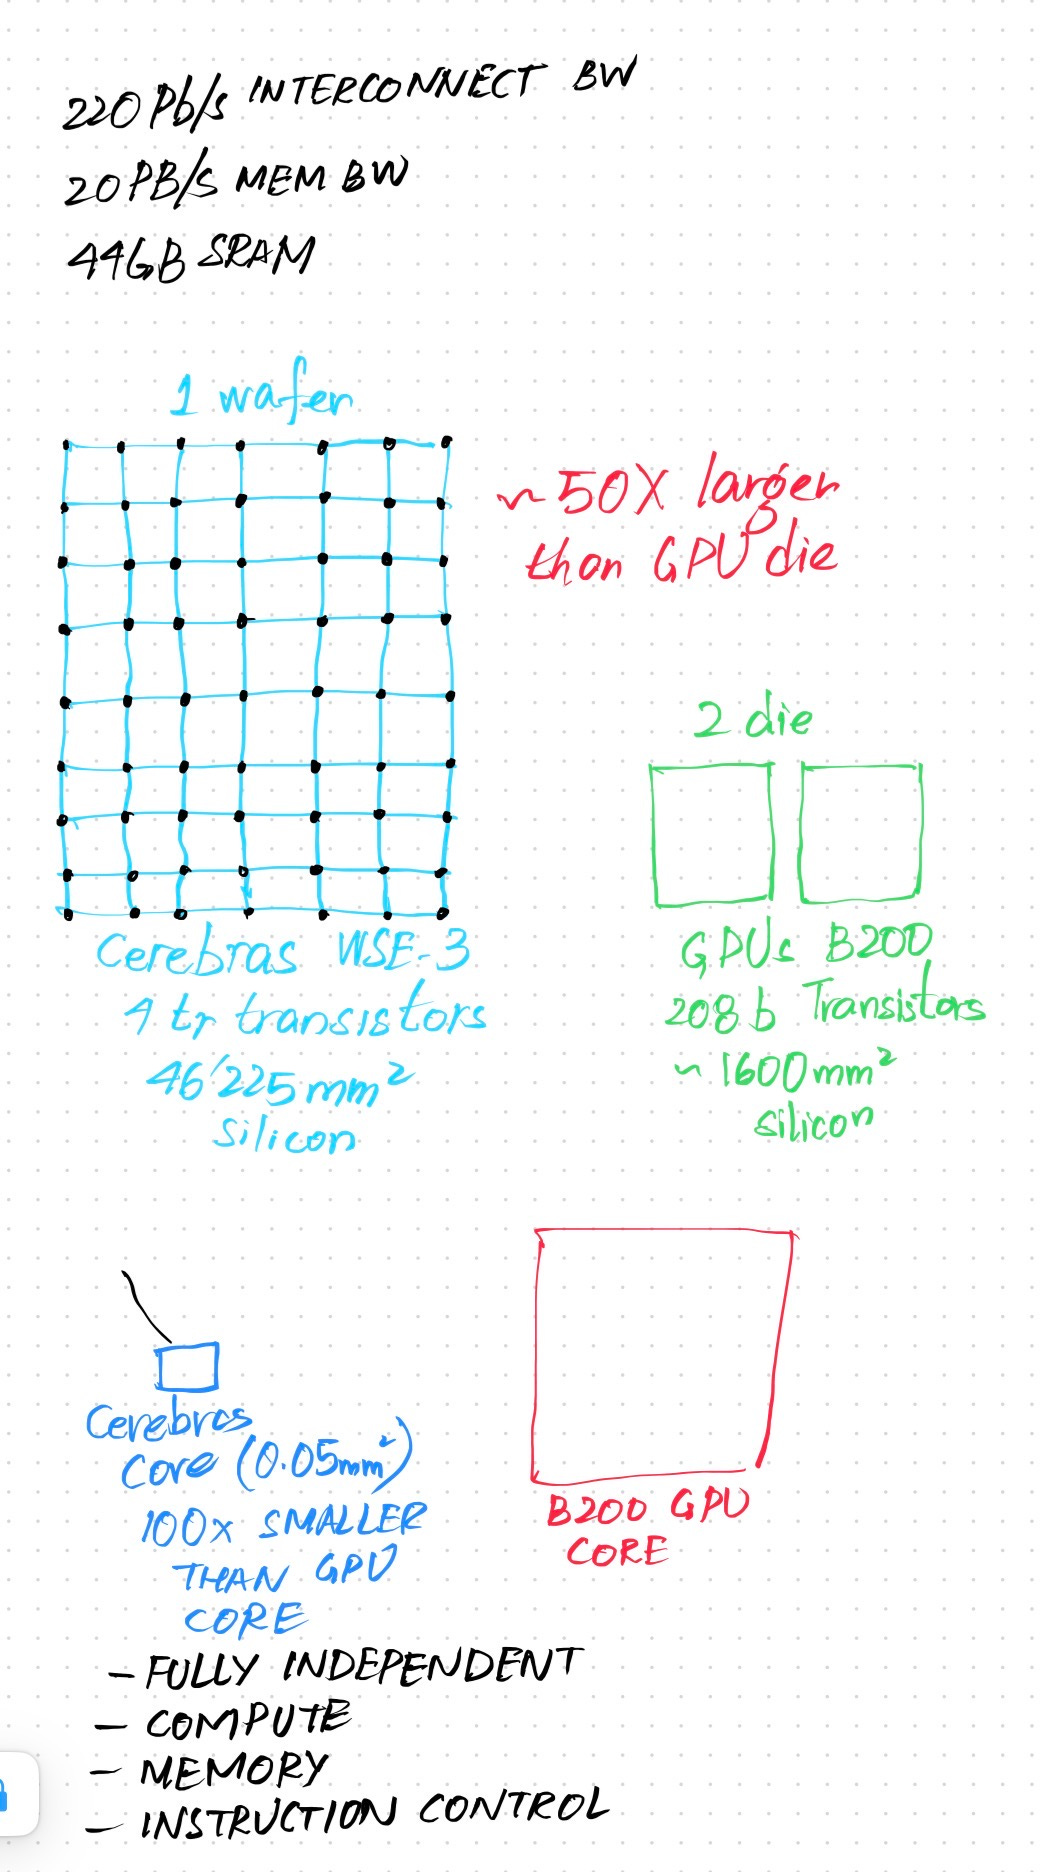 220 Pb/s INTERCONNECT BW
20 PB/s MEM BW
44GB SRAM
1 wafer
~ 50X larger
than GPU die
2 die
Cerebras WSE-3
4 tr transistors
46'225 mm²
silicon
GPUs B200
208 b Transistors
~ 1600 mm²
silicon
Cerebras
Core (0.05mm²)
100x SMALLER
THAN GPU
CORE
B200 GPU
CORE
- FULLY INDEPENDENT
- COMPUTE
- MEMORY
- INSTRUCTION CONTROL